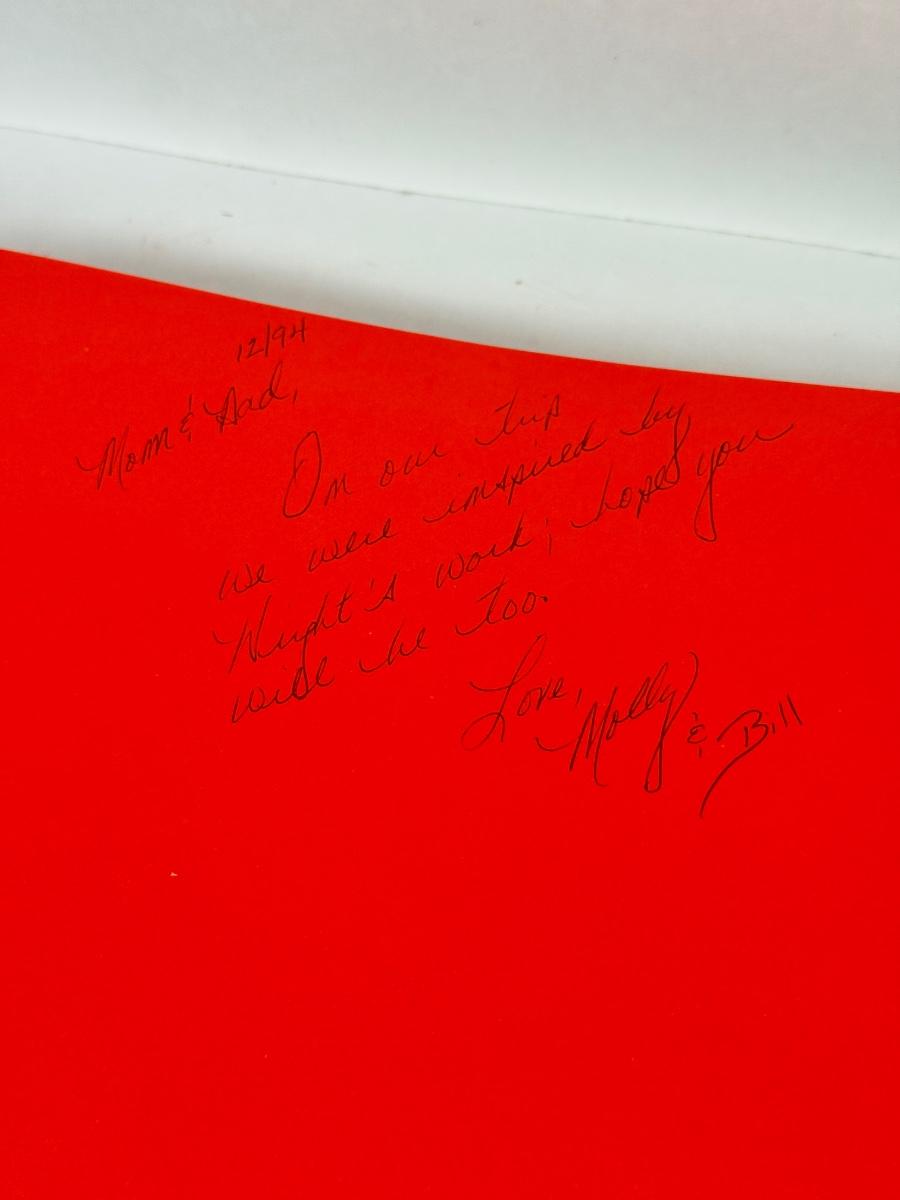 12/94
Mom & Dad,
On our trip
we were inspired by
Wright's work; hope you
will be too.
Love,
Molly & Bill